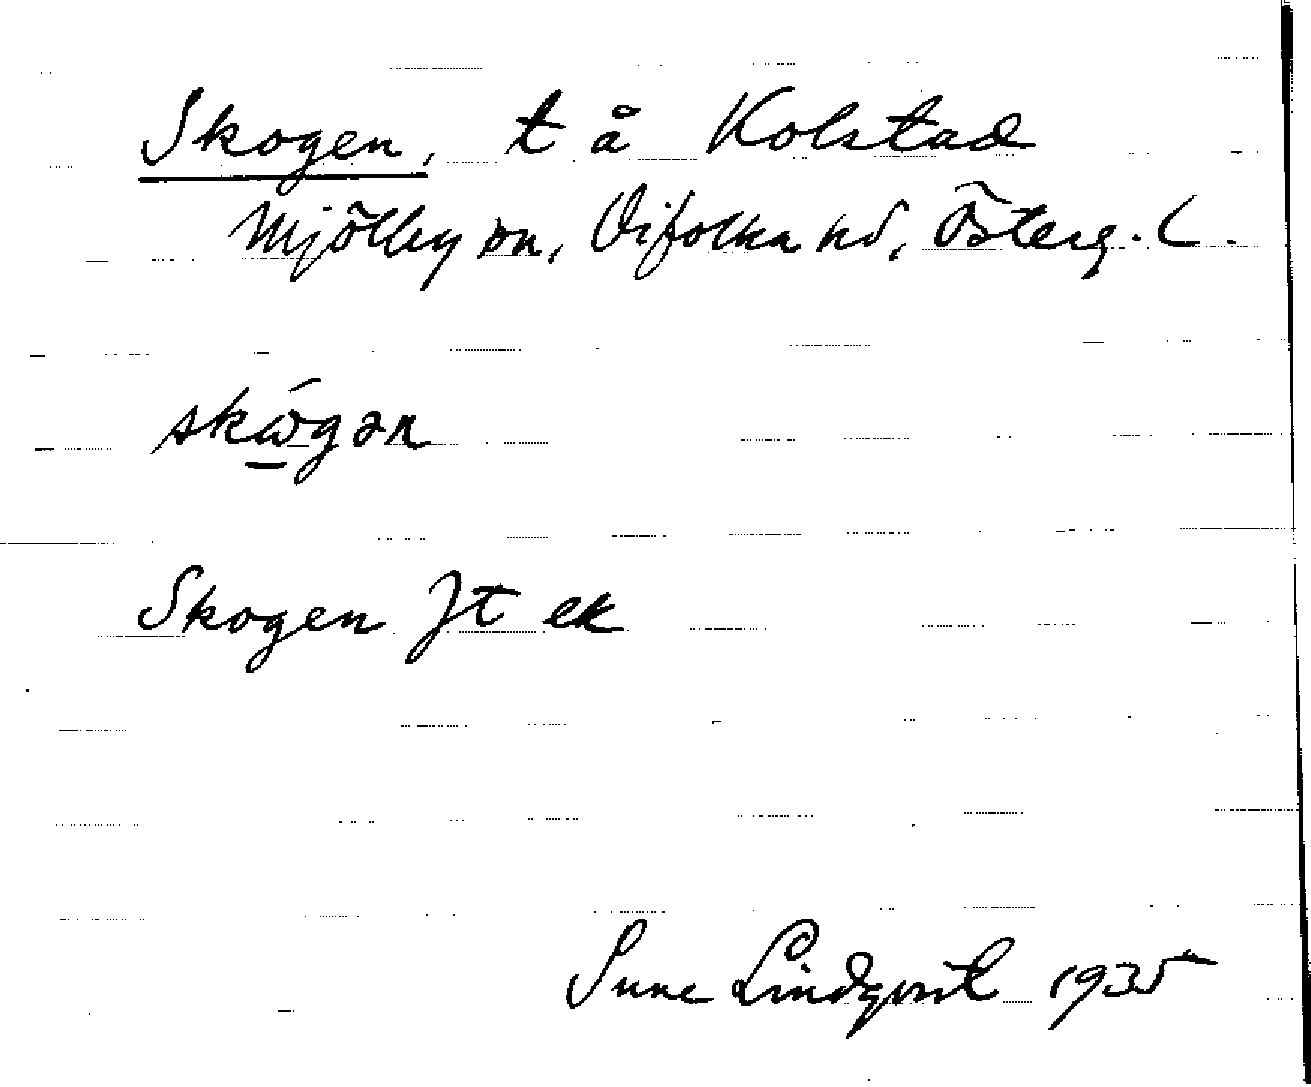 Skogen, t å Kolstad
Mjölby sn, Vifolka hd, Österg. L.
skώ̱gən
Skogen Jt ek
Sune Lindqvist 1935